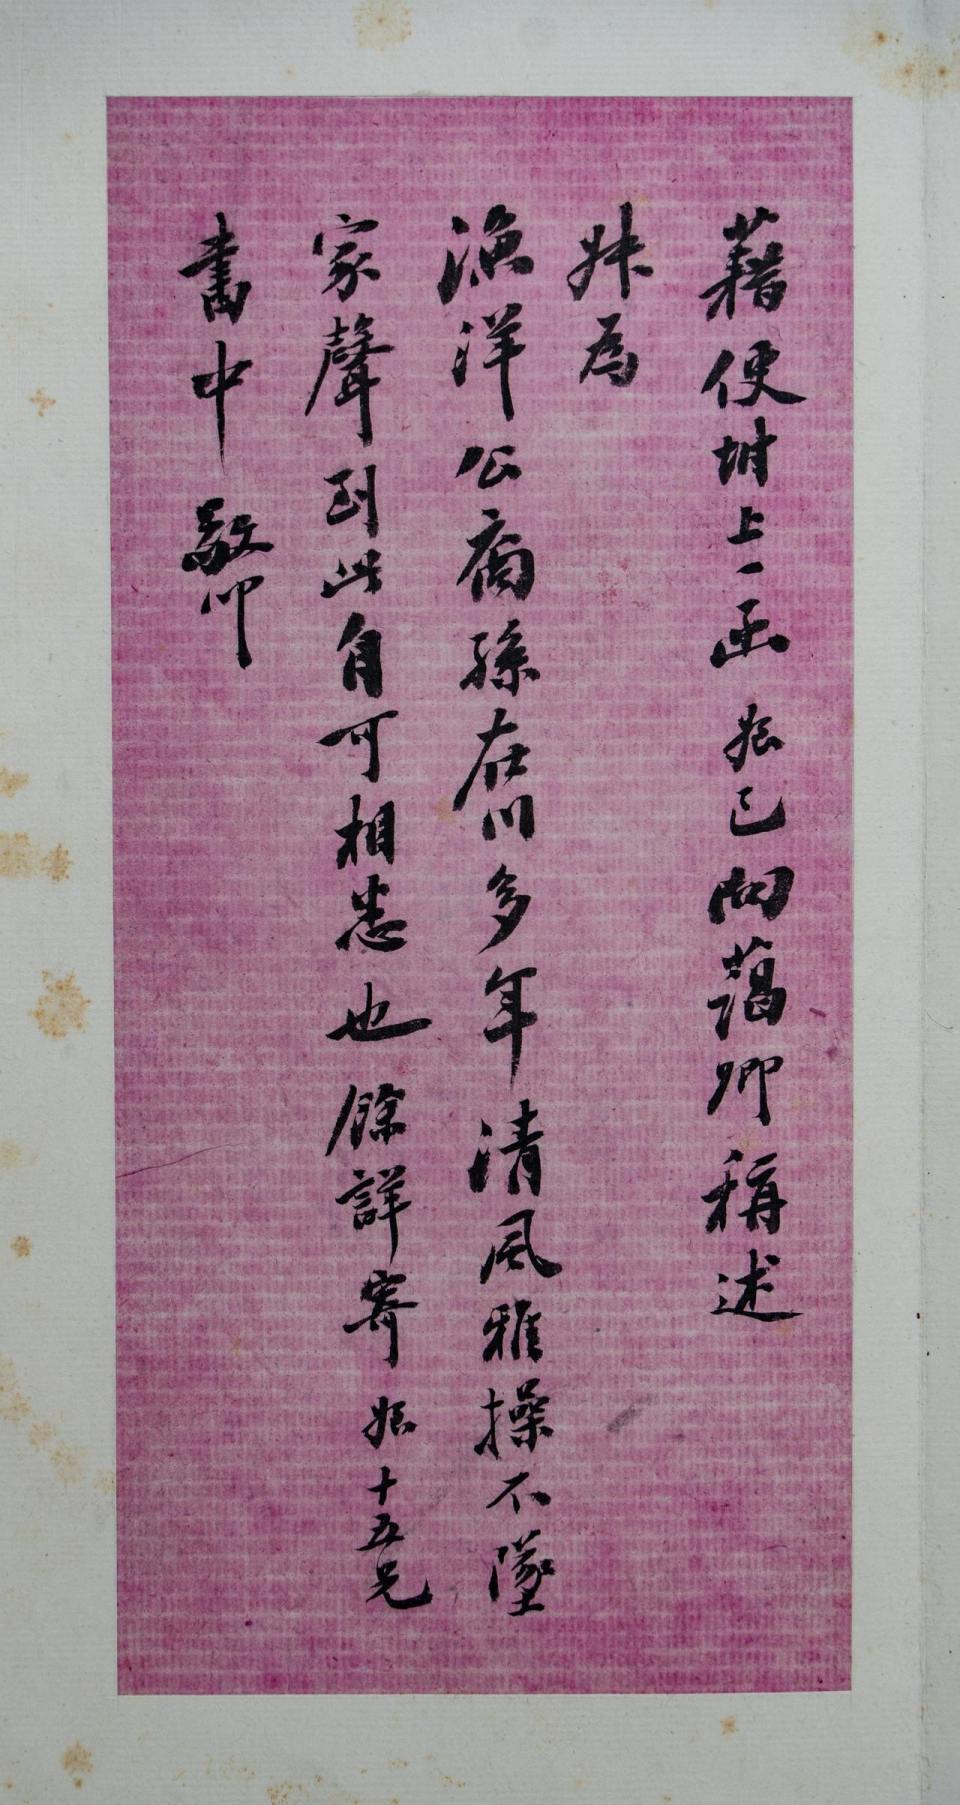 藉便坿上一函娘已向藹卿稱述
妹為
漁洋公裔孫在川多年清風雅操不墜
家聲到此自可相悉也餘詳寄娘十五兄
書中敬叩